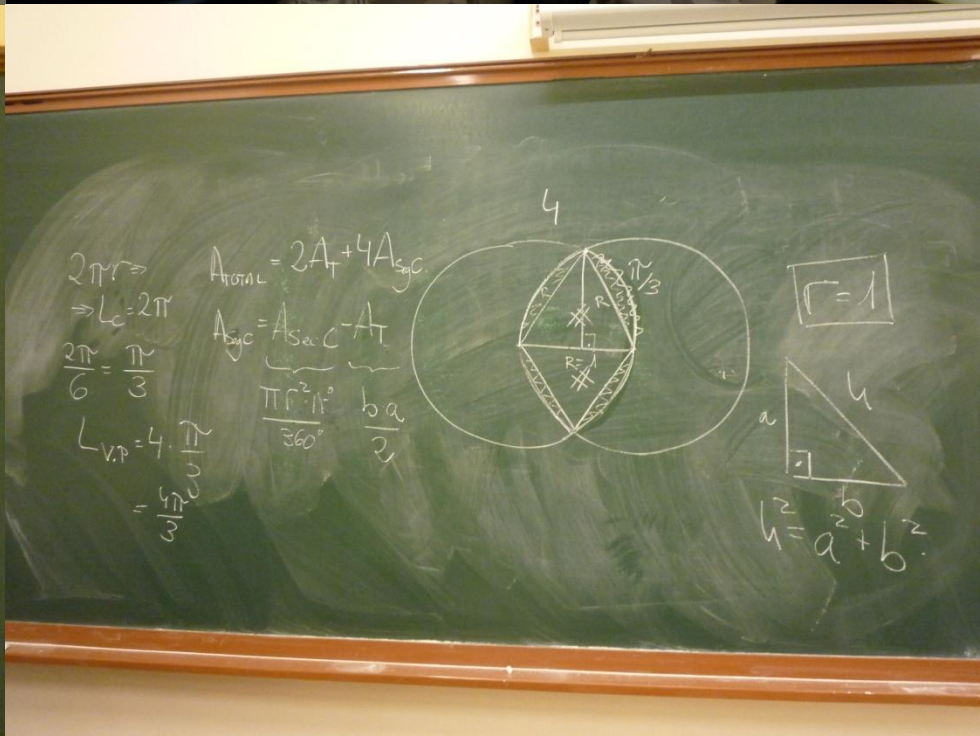 2πr⇒
⇒L_c=2π
2π/6 = π/3
L_V.P = 4·π/3
= 4π/3
A_TOTAL = 2A_T + 4A_SgC.
A_SgC = A_SecC - A_T
πr²·n°/360° ba/2
4
π/3
R
R=1
r=1
a
h
b
h² = a² + b².